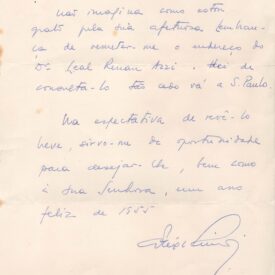 não imagina como estou
grato pela sua afetuosa lembran-
ça de remeter-me o endereço do
Dr. Leal Renan Azzi. Hei de
consultá-lo tão cedo vá a S. Paulo.
Na expectativa de revê-lo
breve, sirvo-me da oportunidade
para desejar-lhe, bem como
à sua Senhora, um ano
feliz de 1955